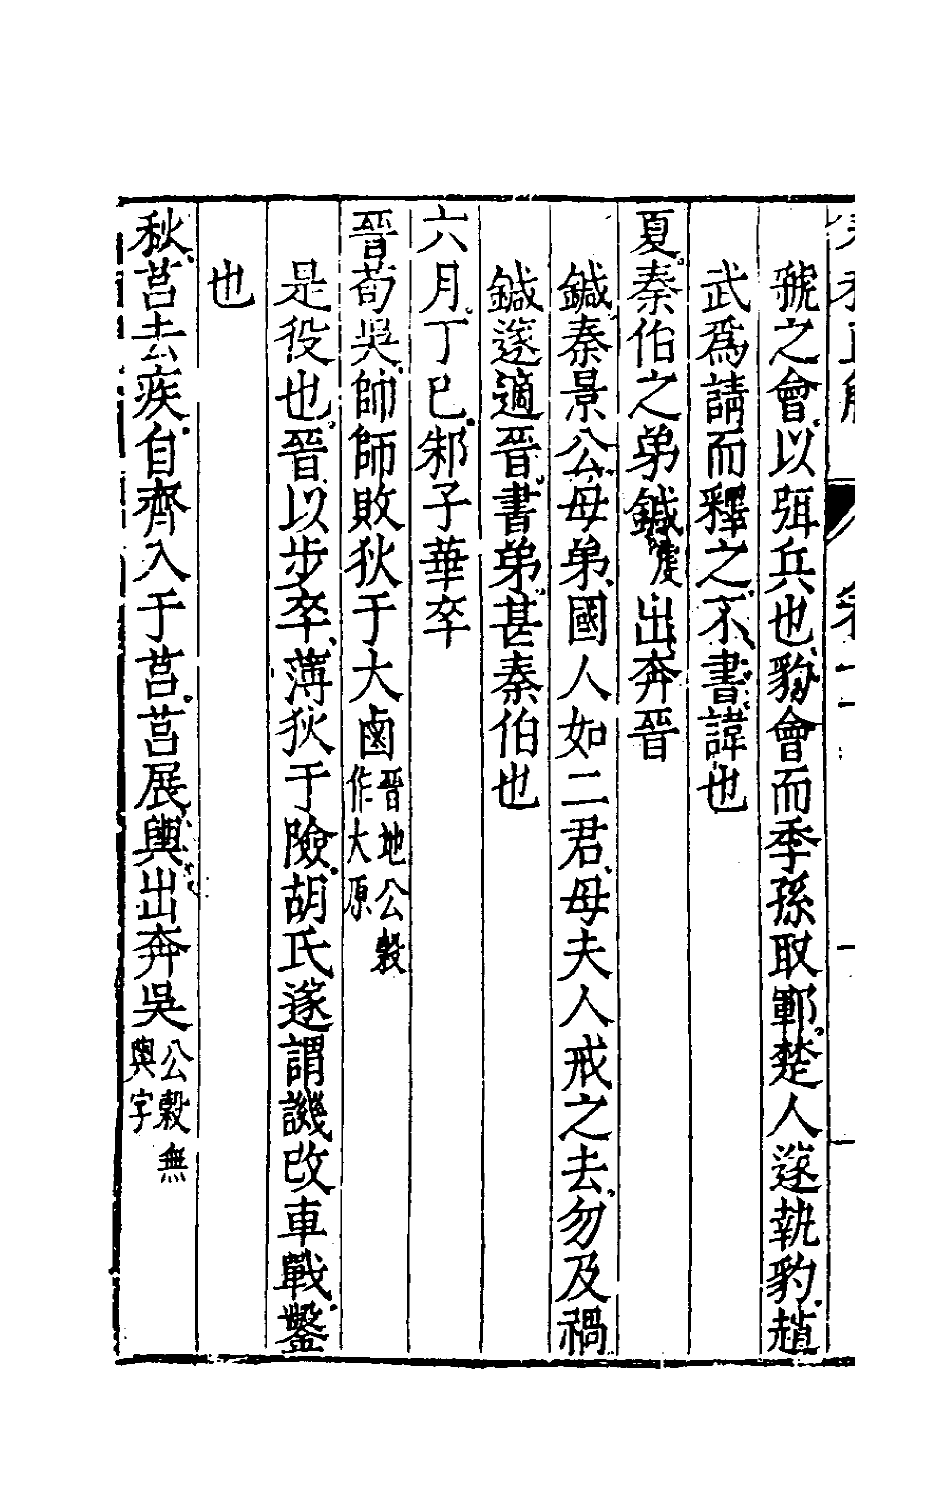 虢之會以弭兵也豹會而季孫取鄆楚人遂執豹趙
武爲請而釋之不書諱也
夏秦伯之弟鍼出奔晉
鍼秦景公母弟國人如二君母夫人戒之去勿及禍
鍼遂適晉書弟甚秦伯也
六月丁巳邾子華卒
晉荀吳師師敗狄于大鹵晉地公穀作大原
是役也晉以步卒薄狄于險胡氏遂謂譏改車戰鑿
也
秋莒去疾自齊入于莒莒展輿出奔吳公穀無輿字